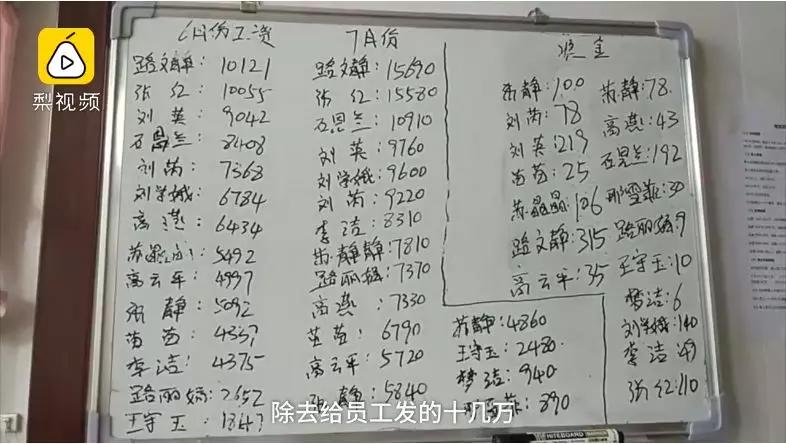 6月份工资
路文静：10121
张红：10055
刘英：9042
石恩兰：8408
刘芮：7368
刘学娥：6784
高燕：6434
5492
高云平：4997
静：5092
苗苗：4337
李洁：4375
路丽娟：2652
王守玉
7月份
路文静：15690
张红：15580
石恩兰：10910
刘英：9760
刘学娥：9600
刘芮：9220
李洁：8310
静静：7810
路丽娟：7370
高燕：7330
苗苗：6790
高云平：5720
静：5840
奖金
静：100
刘芮：78
刘英：219
苗苗：25
苏晶晶：106
路文静：315
高云平：35
苏静：78
高燕：43
石恩兰：192
邢雪菲：30
路丽娟：9
王守玉：10
梦洁：6
刘学娥：140
李洁：49
张红：110
苏静：4860
王守玉：2480
梦洁：940
890
梨视频
除去给员工发的十几万